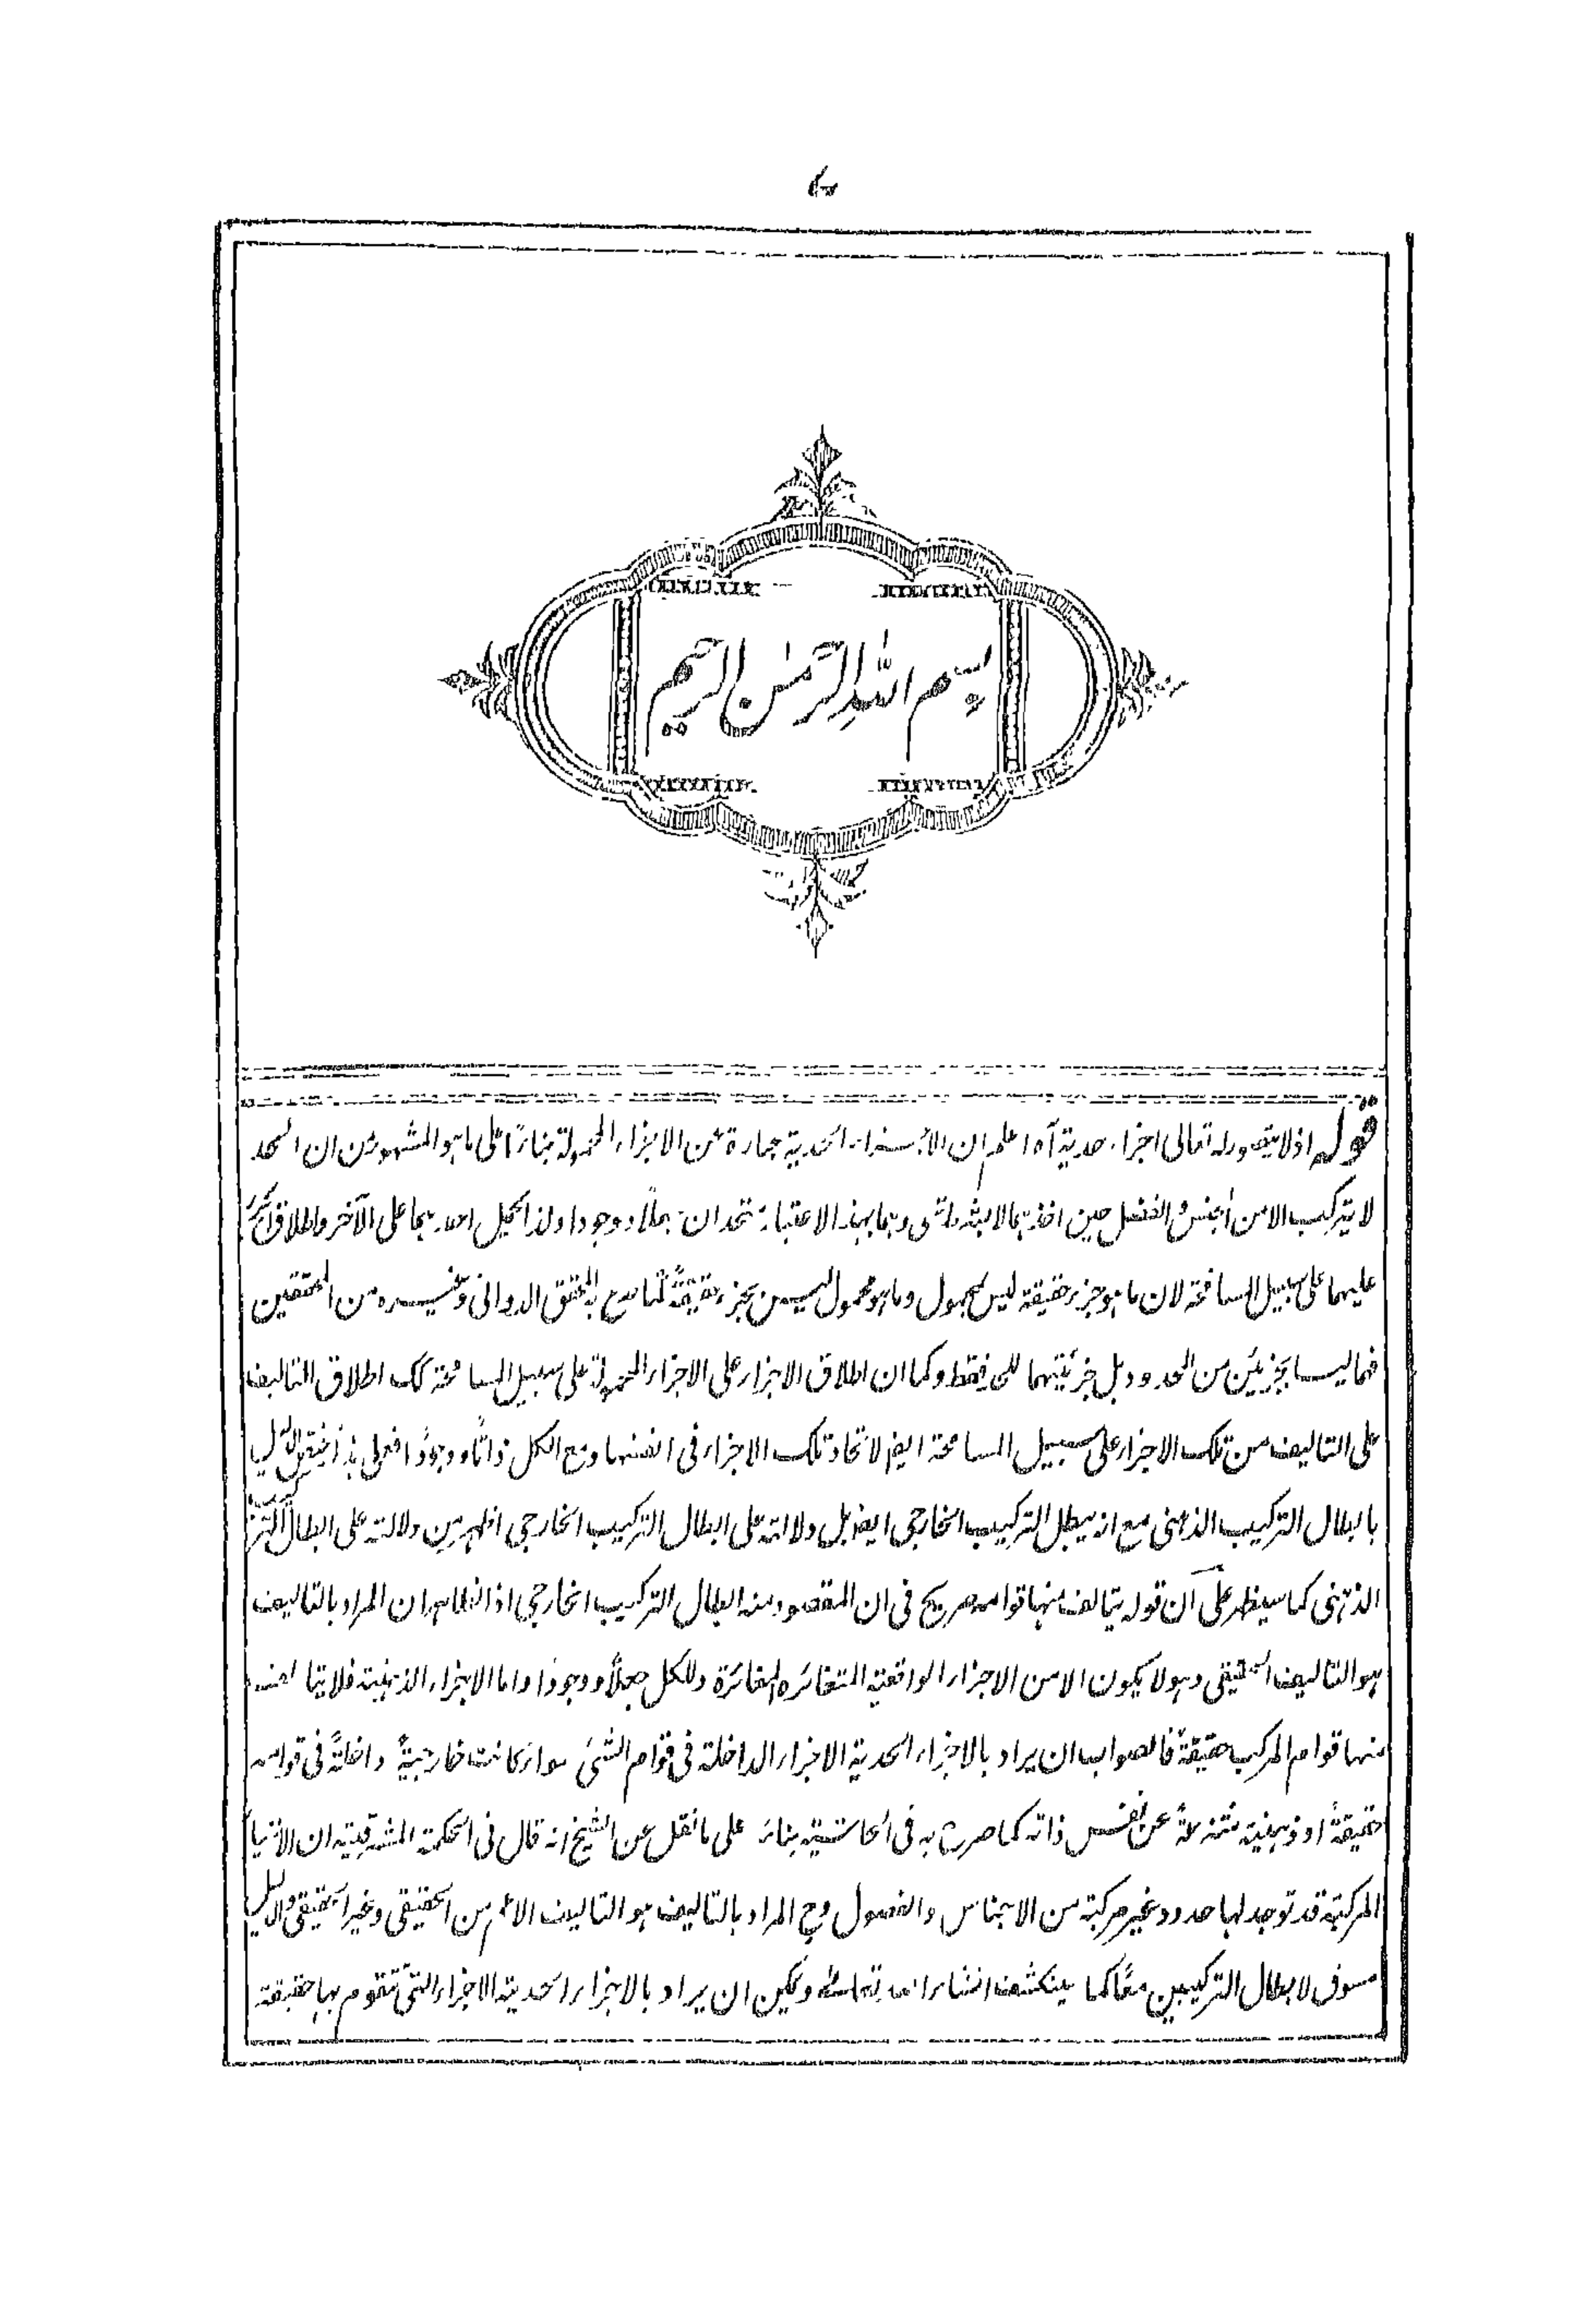 بسم الله الرحمٰن الرحيم
قوله اذ لا يتصور له تعالى اجزاء حدية آه اعلم ان الاجزاء الحدية عبارة عن الاجزاء المحمولة بناءً على ما هو المشهور من ان الحد
لا يتركب الا من الجنس والفصل حين اخذهما لا بشرط شئ وهما بهذا الاعتبار متحدان جعلاً ووجودا ولذا يحمل احدهما على الآخر واطلاق الجزء
عليهما على سبيل المسامحة لان ما هو جزء حقيقة ليس بمحمول وما هو محمول ليس بجزء حقيقةً كما صرح به المحقق الدوانى وغيره من المحققين
فهما ليسا بجزئين من المحدود بل جزئيتهما للحد فقط وكما ان اطلاق الاجزاء على الاجزاء المحمولة على سبيل المسامحة كك اطلاق التاليف
على التاليف من تلك الاجزاء على سبيل المسامحة ايضا لاتحاد تلك الاجزاء فى انفسها ومع الكل ذاتًا ووجودًا فعلى هذا يختص الدليل
بابطال التركيب الذهنى مع انه يبطل التركيب الخارجى ايضا بل دلالته على ابطال التركيب الخارجى اظهر من دلالته على ابطال التركيب
الذهنى كما سيظهر على ان قوله يتالف منها قوامه صريح فى ان المقصود منه ابطال التركيب الخارجى اذ الظاهر ان المراد بالتاليف
هو التاليف الحقيقى وهو لا يكون الا من الاجزاء الواقعية المتغائرة المغائرة وللكل جعلاً ووجودًا واما الاجزاء الذهنية فلا يتالف
منها قوام المركب حقيقةً فالصواب ان يراد بالاجزاء الحدية الاجزاء الداخلة فى قوام الشئ سواء كانت خارجيةً داخلةً فى قوامه
حقيقةً او ذهنية منتزعةً عن نفس ذاته كما صرح به فى الحاشية بناءً على ما نقل عن الشيخ انه قال فى الحكمة المشرقية ان الاشياء
المركبة قد توجد لها حدود غير مركبة من الاجناس والفصول وح المراد بالتاليف هو التاليف الاعم من الحقيقى وغير الحقيقى والدليل
مسوق لابطال التركيبين معًا كما ينكشف انشاء الله تعالى ويمكن ان يراد بالاجزاء الحدية الاجزاء التى تتقوم بها حقيقة